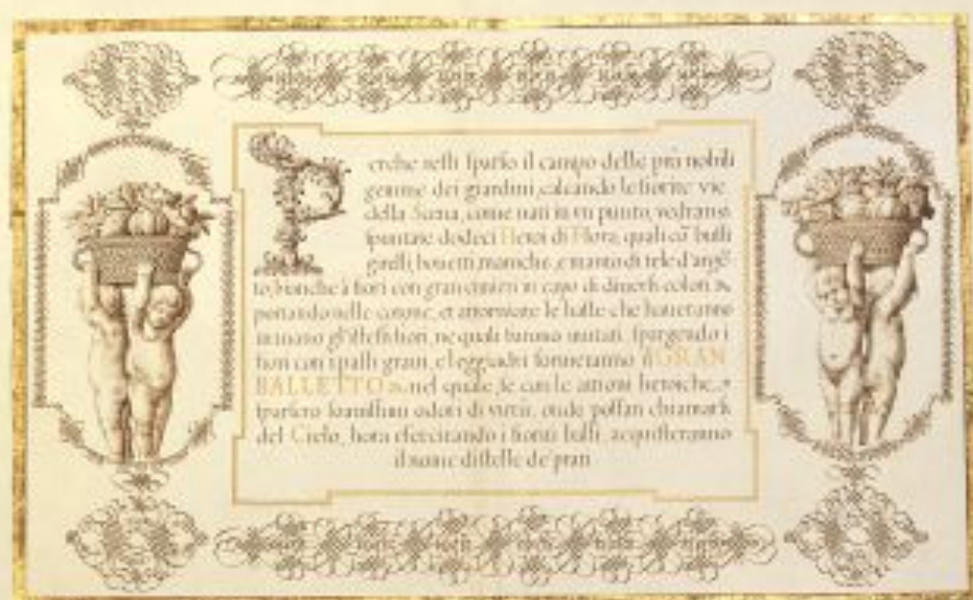 Perche resti sparso il campo delle più nobili
gemme dei giardini, calcando le fiorite vie
della Scena, come nati in vn punto, vedransi
spuntare dodeci Heroi di Flora, quali cõ busti
girelli, bonetti, maniche, e manto di tele d'argẽ
to, bianche à fiori con gran cimieri in capo di diuersi colori
portando nelle corone, et attorniate le haste che haueranno
in mano gl'istessi fiori, ne quali furono mutati, spargendo i
fiori con i passi graui, e leggiadri formeranno il GRAN
BALLETTO nel quale, se con le attioni heroiche
sparsero odori di virtù, onde possan chiamarsi
del Cielo, hora esercitando i fioriti balli, acquisteranno
il nome di stelle de prati